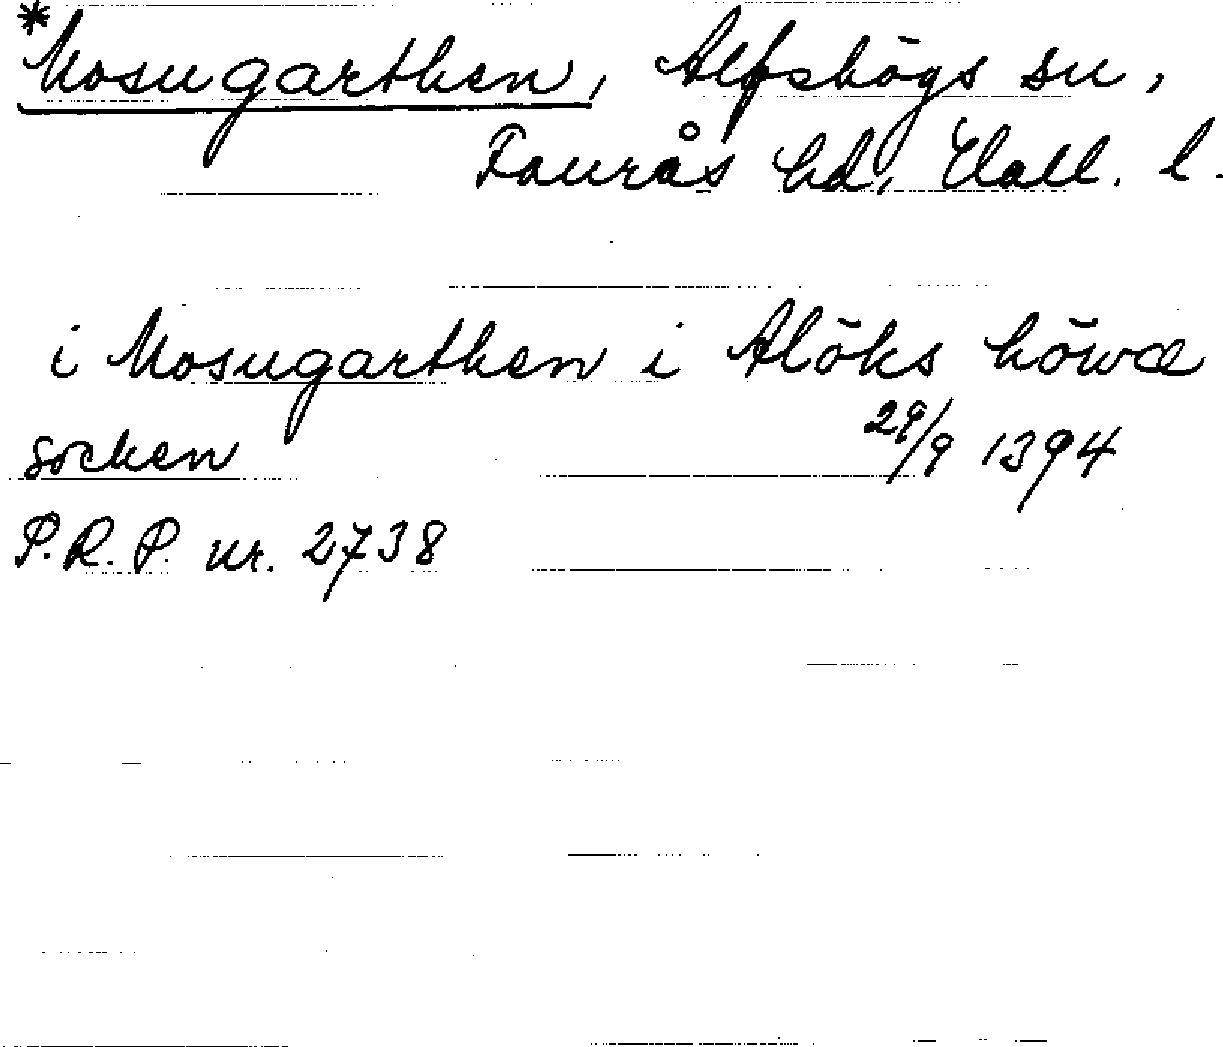 *Mosugarthen, Alfshögs sn,
Faurås hd, Hall. l.
i Mosugarthen i Alöks höwæ
socken 29/9 1394
P.R.P. nr. 2738